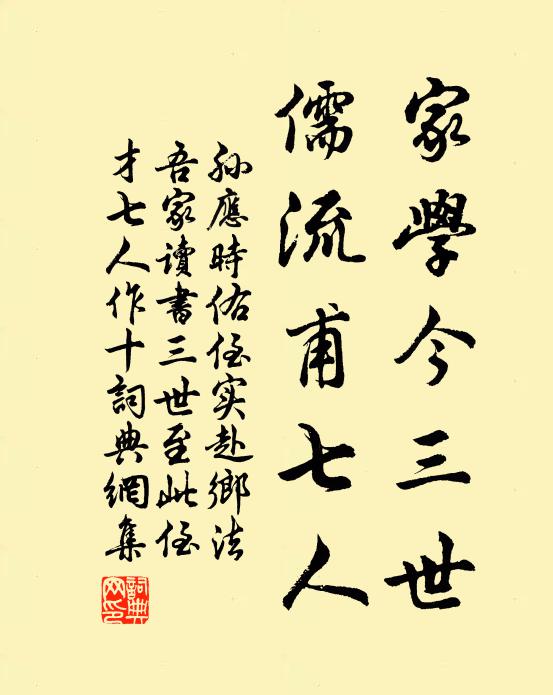 家學今三世
儒流甫七人
孫應時佑侄实赴鄉法
吾家讀書三世至此侄
才七人作十詞典網集
詞典網印